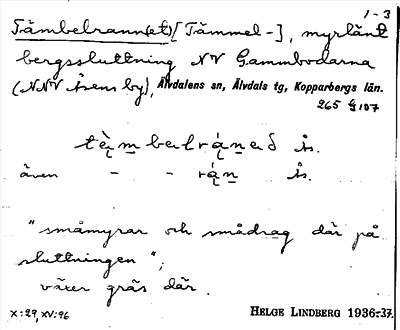 1-3
Tämbelrann(et) [Tämmel-], myrlänt
bergssluttning NV Gammbodarna
(NNV Åsens by), Älvdalens sn, Älvdals tg, Kopparbergs län.
265 G 107
Ås.
även - - Ås.
"småmyrar och smådrag där på
sluttningen";
växer gräs där.
X:29, XV:96 HELGE LINDBERG 1936-37.